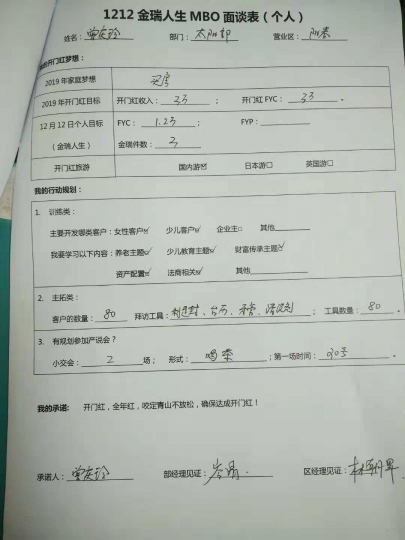 1212金瑞人生MBO面谈表（个人）
姓名：曾庆玲 部门：太阳部 营业区：阳春
我的开门红梦想：
2019年家庭梦想 买房
2019年开门红目标 开门红收入：33； 开门红FYC：33。
12月12日个人目标 FYC：1.23； FYP：
（金瑞人生） 金瑞件数：3
开门红旅游 国内游☑ 日本游□ 英国游□
我的行动规划：
1. 训练类：
主要开发哪类客户：女性客户☑ 少儿客户☑ 企业主□ 其他
我要学习以下内容：养老主题☑ 少儿教育主题☑ 财富传承主题☑
资产配置☑ 法商相关☑ 其他
2. 主拓类：
客户的数量：80 拜访工具：台历、； 工具数量：80。
3. 有规划参加产说会？
小交会：2场； 形式：喝茶； 第一场时间：。
我的承诺： 开门红，全年红，咬定青山不放松，确保达成开门红！
承诺人：曾庆玲 部经理见证： 区经理见证：